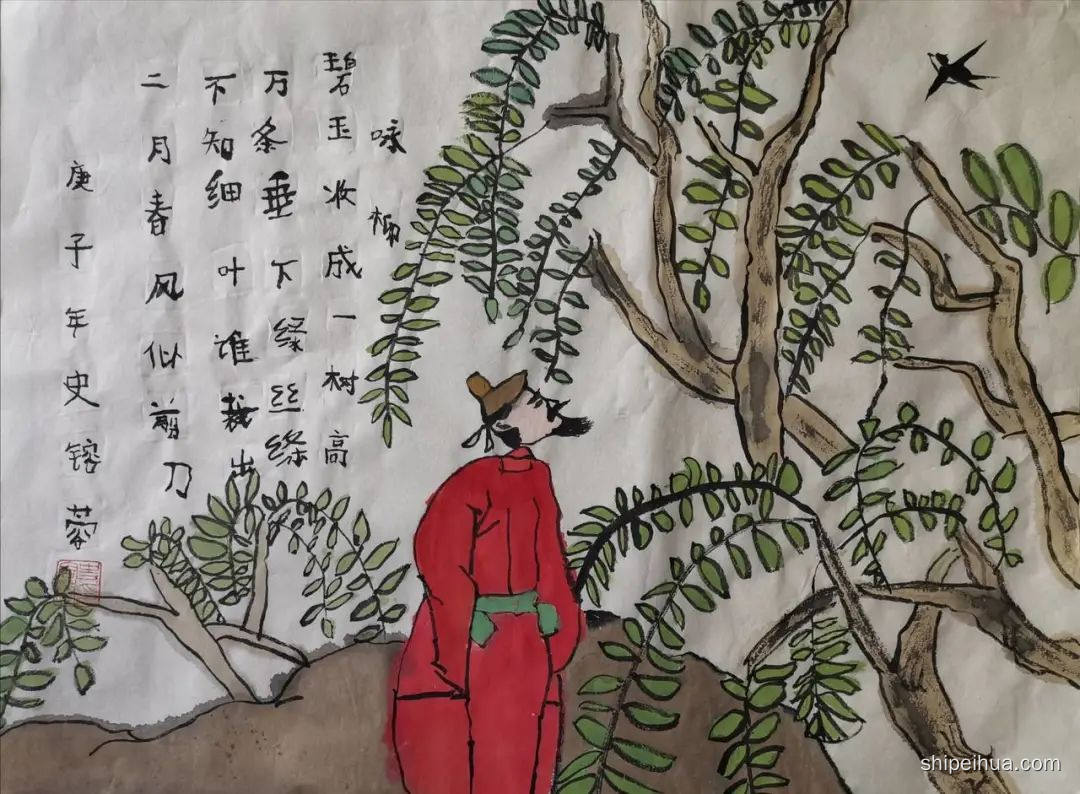 咏柳
碧玉妆成一树高
万条垂下绿丝绦
不知细叶谁裁出
二月春风似剪刀
庚子年史镕蓉
shipeihua.com